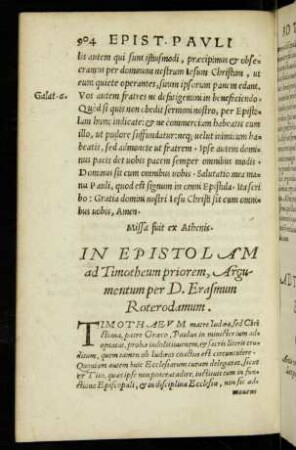 904 EPIST. PAVLI
lis autem qui sunt istiusmodi, præcipimus & obse
cramus per dominum nostrum Iesum Christum, ut
cum quiete operantes, suum ipsorum panem edant.
Galat. 6. Vos autem fratres ne defatigemini in benefaciendo.
Quòd si quis non obedit sermoni nostro, per Episto
lam hunc indicate: & ne commercium habeatis cum
illo, ut pudore suffundatur: neq; uelut inimicum ha
beatis, sed admoncte ut fratrem. Ipse autem domi
nus pacis det uobis pacem semper omnibus modis.
Dominus sit cum omnibus uobis. Salutatio mea ma
nu Pauli, quod est signum in omni Epistola. Ita scri
bo: Gratia domini nostri Iesu Christi sit cum omni
bus uobis, Amen.
Missa fuit ex Athenis.
IN EPISTOLAM
ad Timotheum priorem, Argu-
mentum per D. Erasmum
Roterodamum.
TIMOTHAEVM matre Iudæa, sed Chri
stiana, patre Græco, Paulus in ministerium ad
optarat, probæ indolis iuuenem, & sacris literis eru
ditum, quem tamen ob Iudæos coactus est circuncidere.
Quoniam autem huic Ecclesiarum curam delegarat, sicut
& Tito, quas ipse non poterat adire, instituit eum in fun
ctione Episcopali, & in disciplina Ecclesiæ, non sic ad
monens